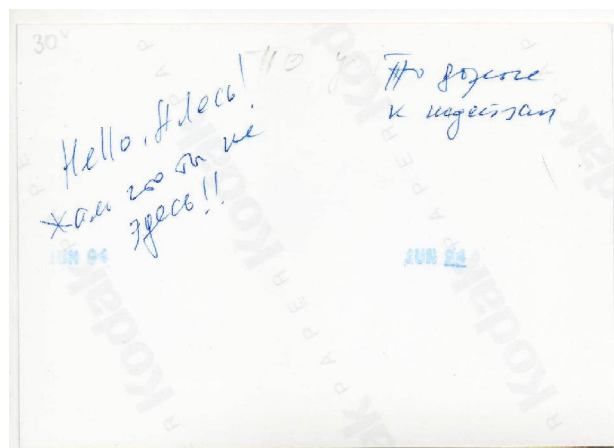 30
Hello, Алесь!
Жаль что ты не
здесь!!
По дороге
к индейцам
JUN 94
JUN 94
Kodak PAPER